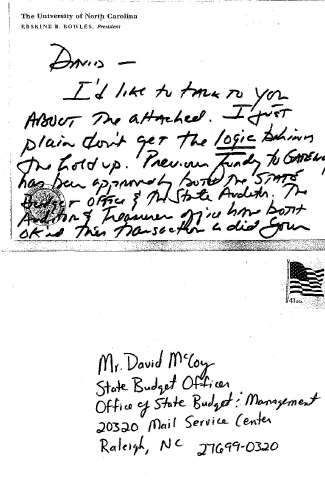 The University of North Carolina
ERSKINE B. BOWLES, President
DAVID —
I'd like to talk to you
ABOUT The attached. I just
plain don't get the logic behind
the hold up. Previous funding to GATEWAY
has been approved by both the STATE
Budget office & the State Auditor. The
Auditor & Treasurer office have both
ok'd this transaction & did your
41
Mr. David McCoy
State Budget Officer
Office of State Budget & Management
20320 Mail Service Center
Raleigh, NC 27699-0320